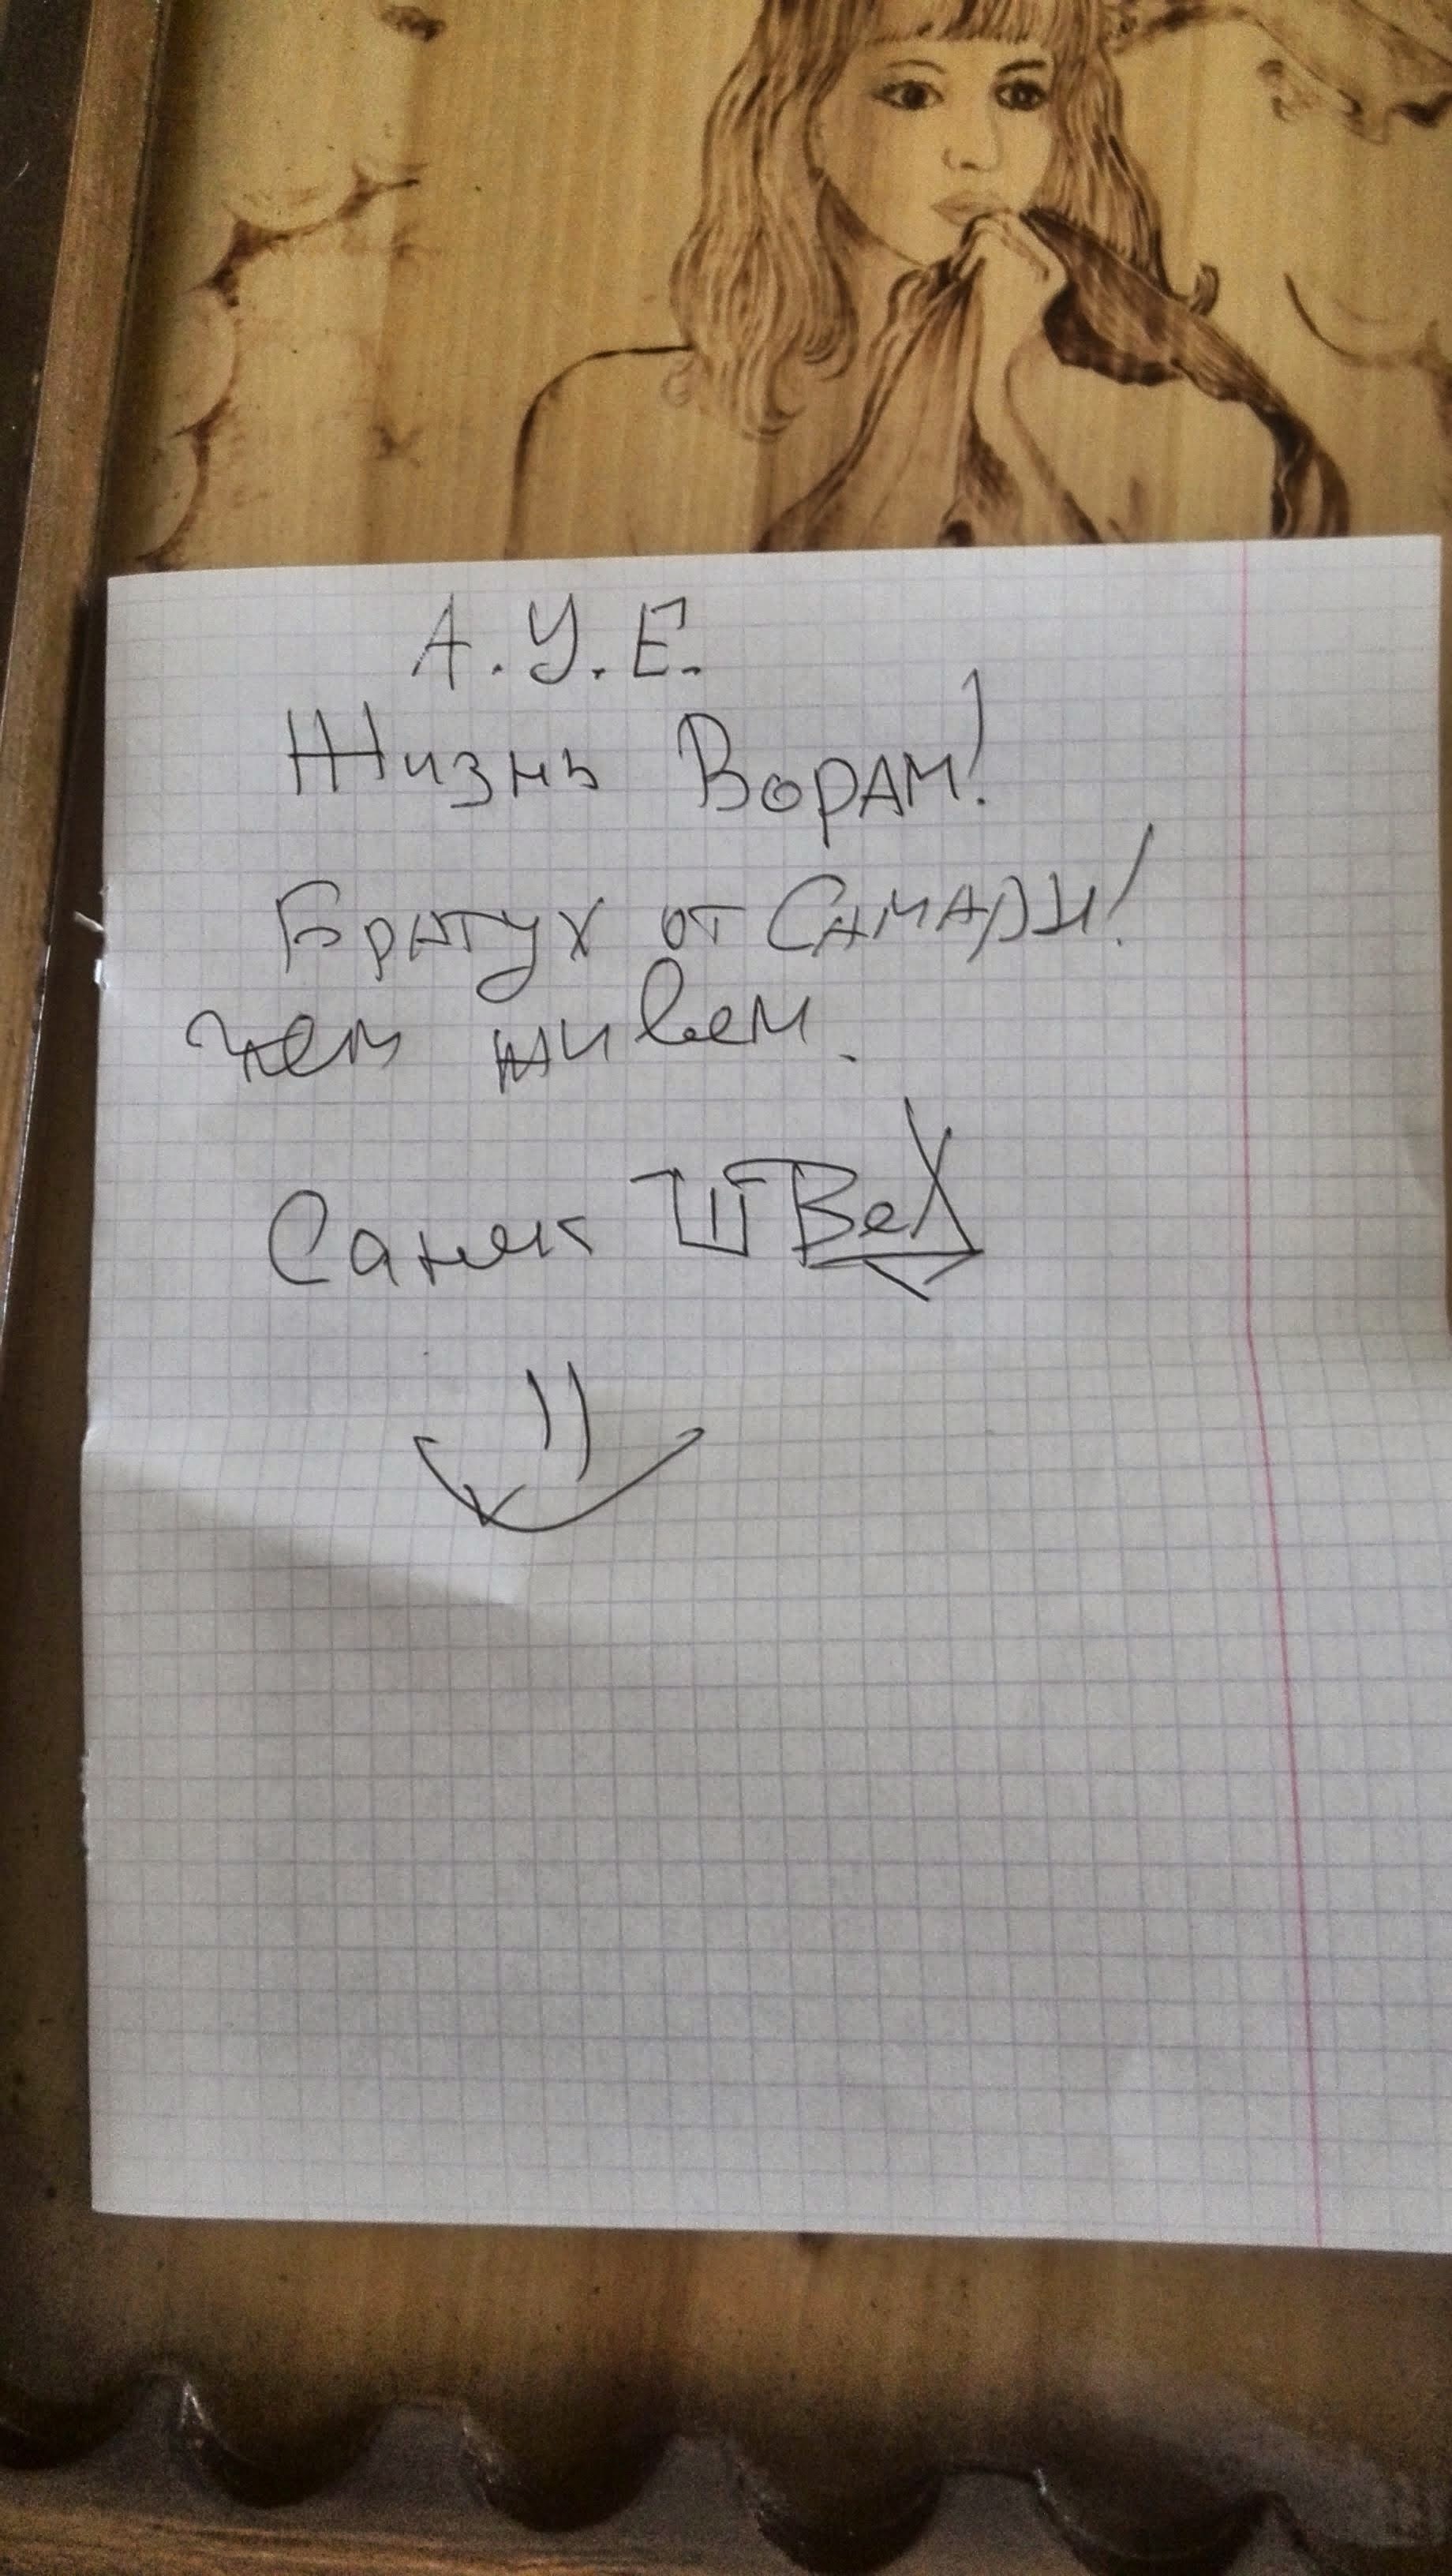 А.У.Е.
Жизнь Ворам!
Братух от Самары!
чем живем.
Санек ШВеД
))